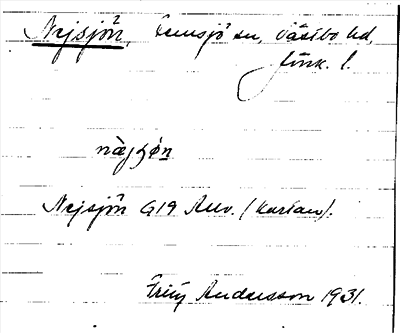 Nejsjön, Femsjö sn, Västbo hd,
Jönk. l.
nàjʂø̀n
Nejsjön G19 Anv. (kartan).
Fritz Andersson 1931.